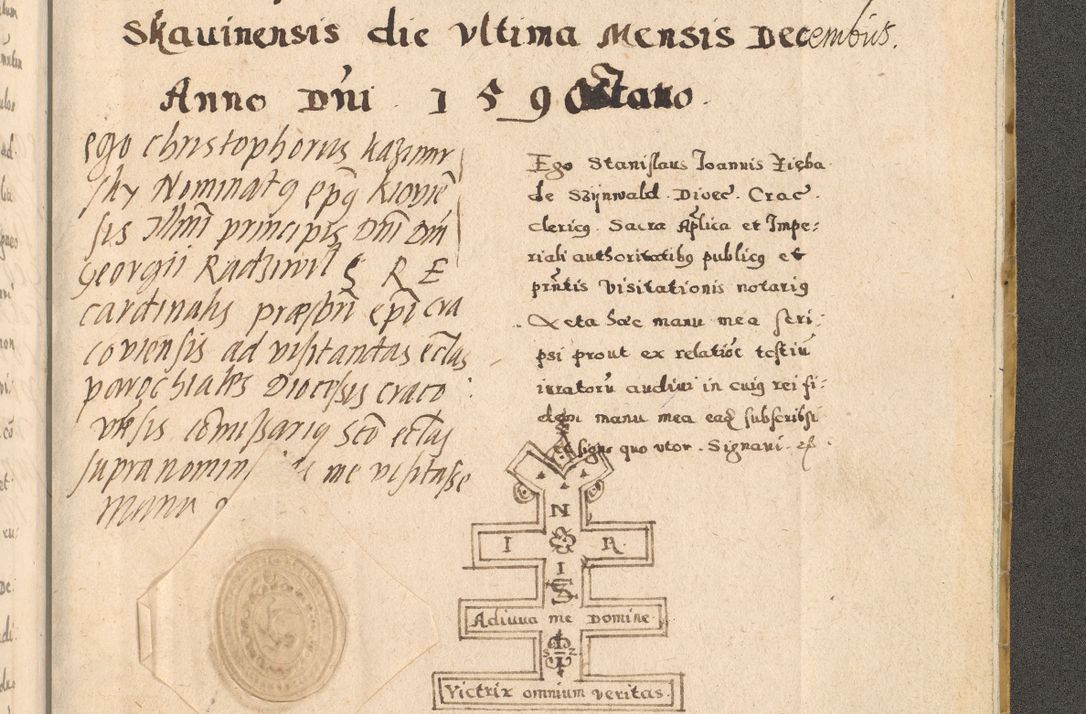 Skauinensis die vltima Mensis Decembris.
Anno Dñi 1 5 9 Octauo.
ego Christophorus Kazimir
sky Nominatq epq kiovie
sis Illmi principis Dñi Dñi
Georgii Radziwil S R E
cardinalis præsbri epi cra
coviensis ad visitantas ecclas
parochiales Diocesis craco
vesis comissariq sctō ecclas
supra nomin me visitasse
manu
Ego Stanislaus Ioannis Zięba
de Szÿnwald. Dioec. Crac.
clericq. Sacra Aplica et Impe:
riali authoritatibq publicq et
pñtis visitationis notariq
Acta hæc manu mea scri:
psi prout ex relatiōe testiū
iuratorū audiui in cuiq rei fi:
dem manu mea eadē subscribsi
et signo quo vtor. Signaui.
N
I R
I
S
Adiuua me Domine.
S Z
Victrix omnium veritas.